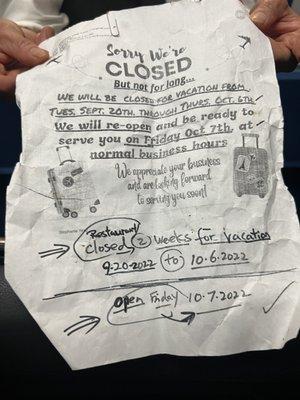 Sorry We're
CLOSED
But not for long...
WE WILL BE CLOSED FOR VACATION FROM
TUES, SEPT. 20TH. THROUGH THURS, OCT. 6TH
We will re-open and be ready to
serve you on Friday Oct 7th, at
normal business hours
We appreciate your business
and are looking forward
to serving you soon!
Restaurant
closed 2 weeks for vacation
9-20-2022 to 10.6.2022
open Friday 10.7.2022